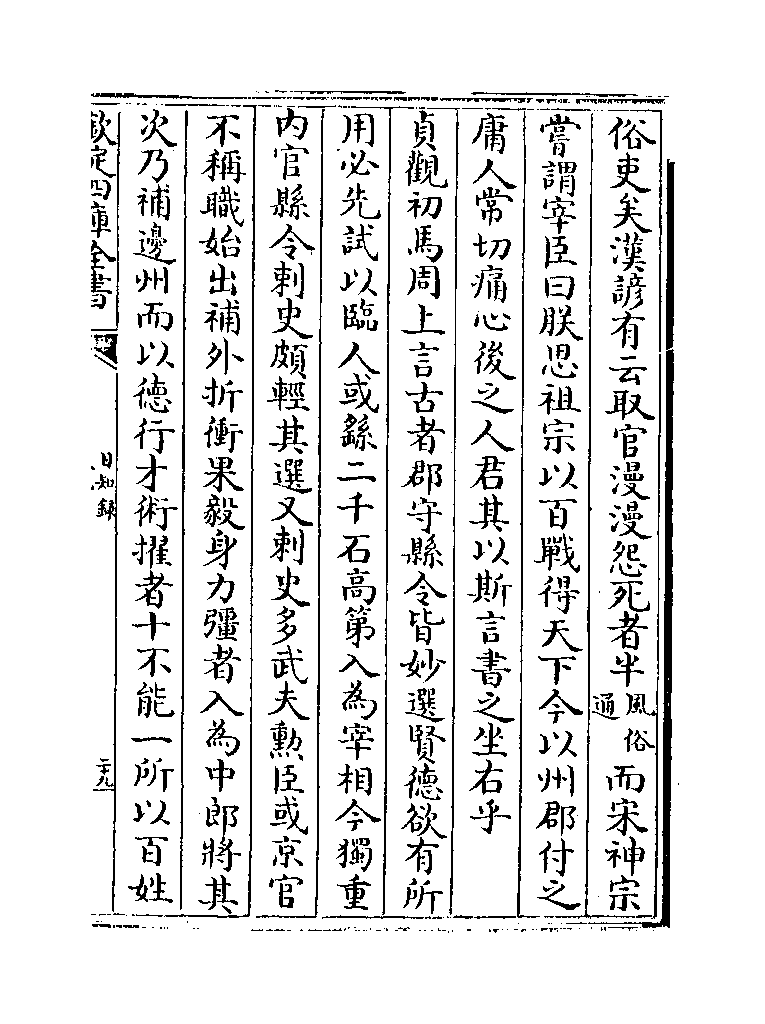 俗吏矣漢諺有云取官漫漫怨死者半風俗通而宋神宗
嘗謂宰臣曰朕思祖宗以百戰得天下今以州郡付之
庸人常切痛心後之人君其以斯言書之坐右乎
貞觀初馬周上言古者郡守縣令皆妙選賢德欲有所
用必先試以臨人或繇二千石高第入為宰相今獨重
內官縣令刺史頗輕其選又刺史多武夫勲臣或京官
不稱職始出補外折衝果毅身力彊者入為中郎將其
次乃補邊州而以德行才術擢者十不能一所以百姓
欽定四庫全書
日知錄
二十九